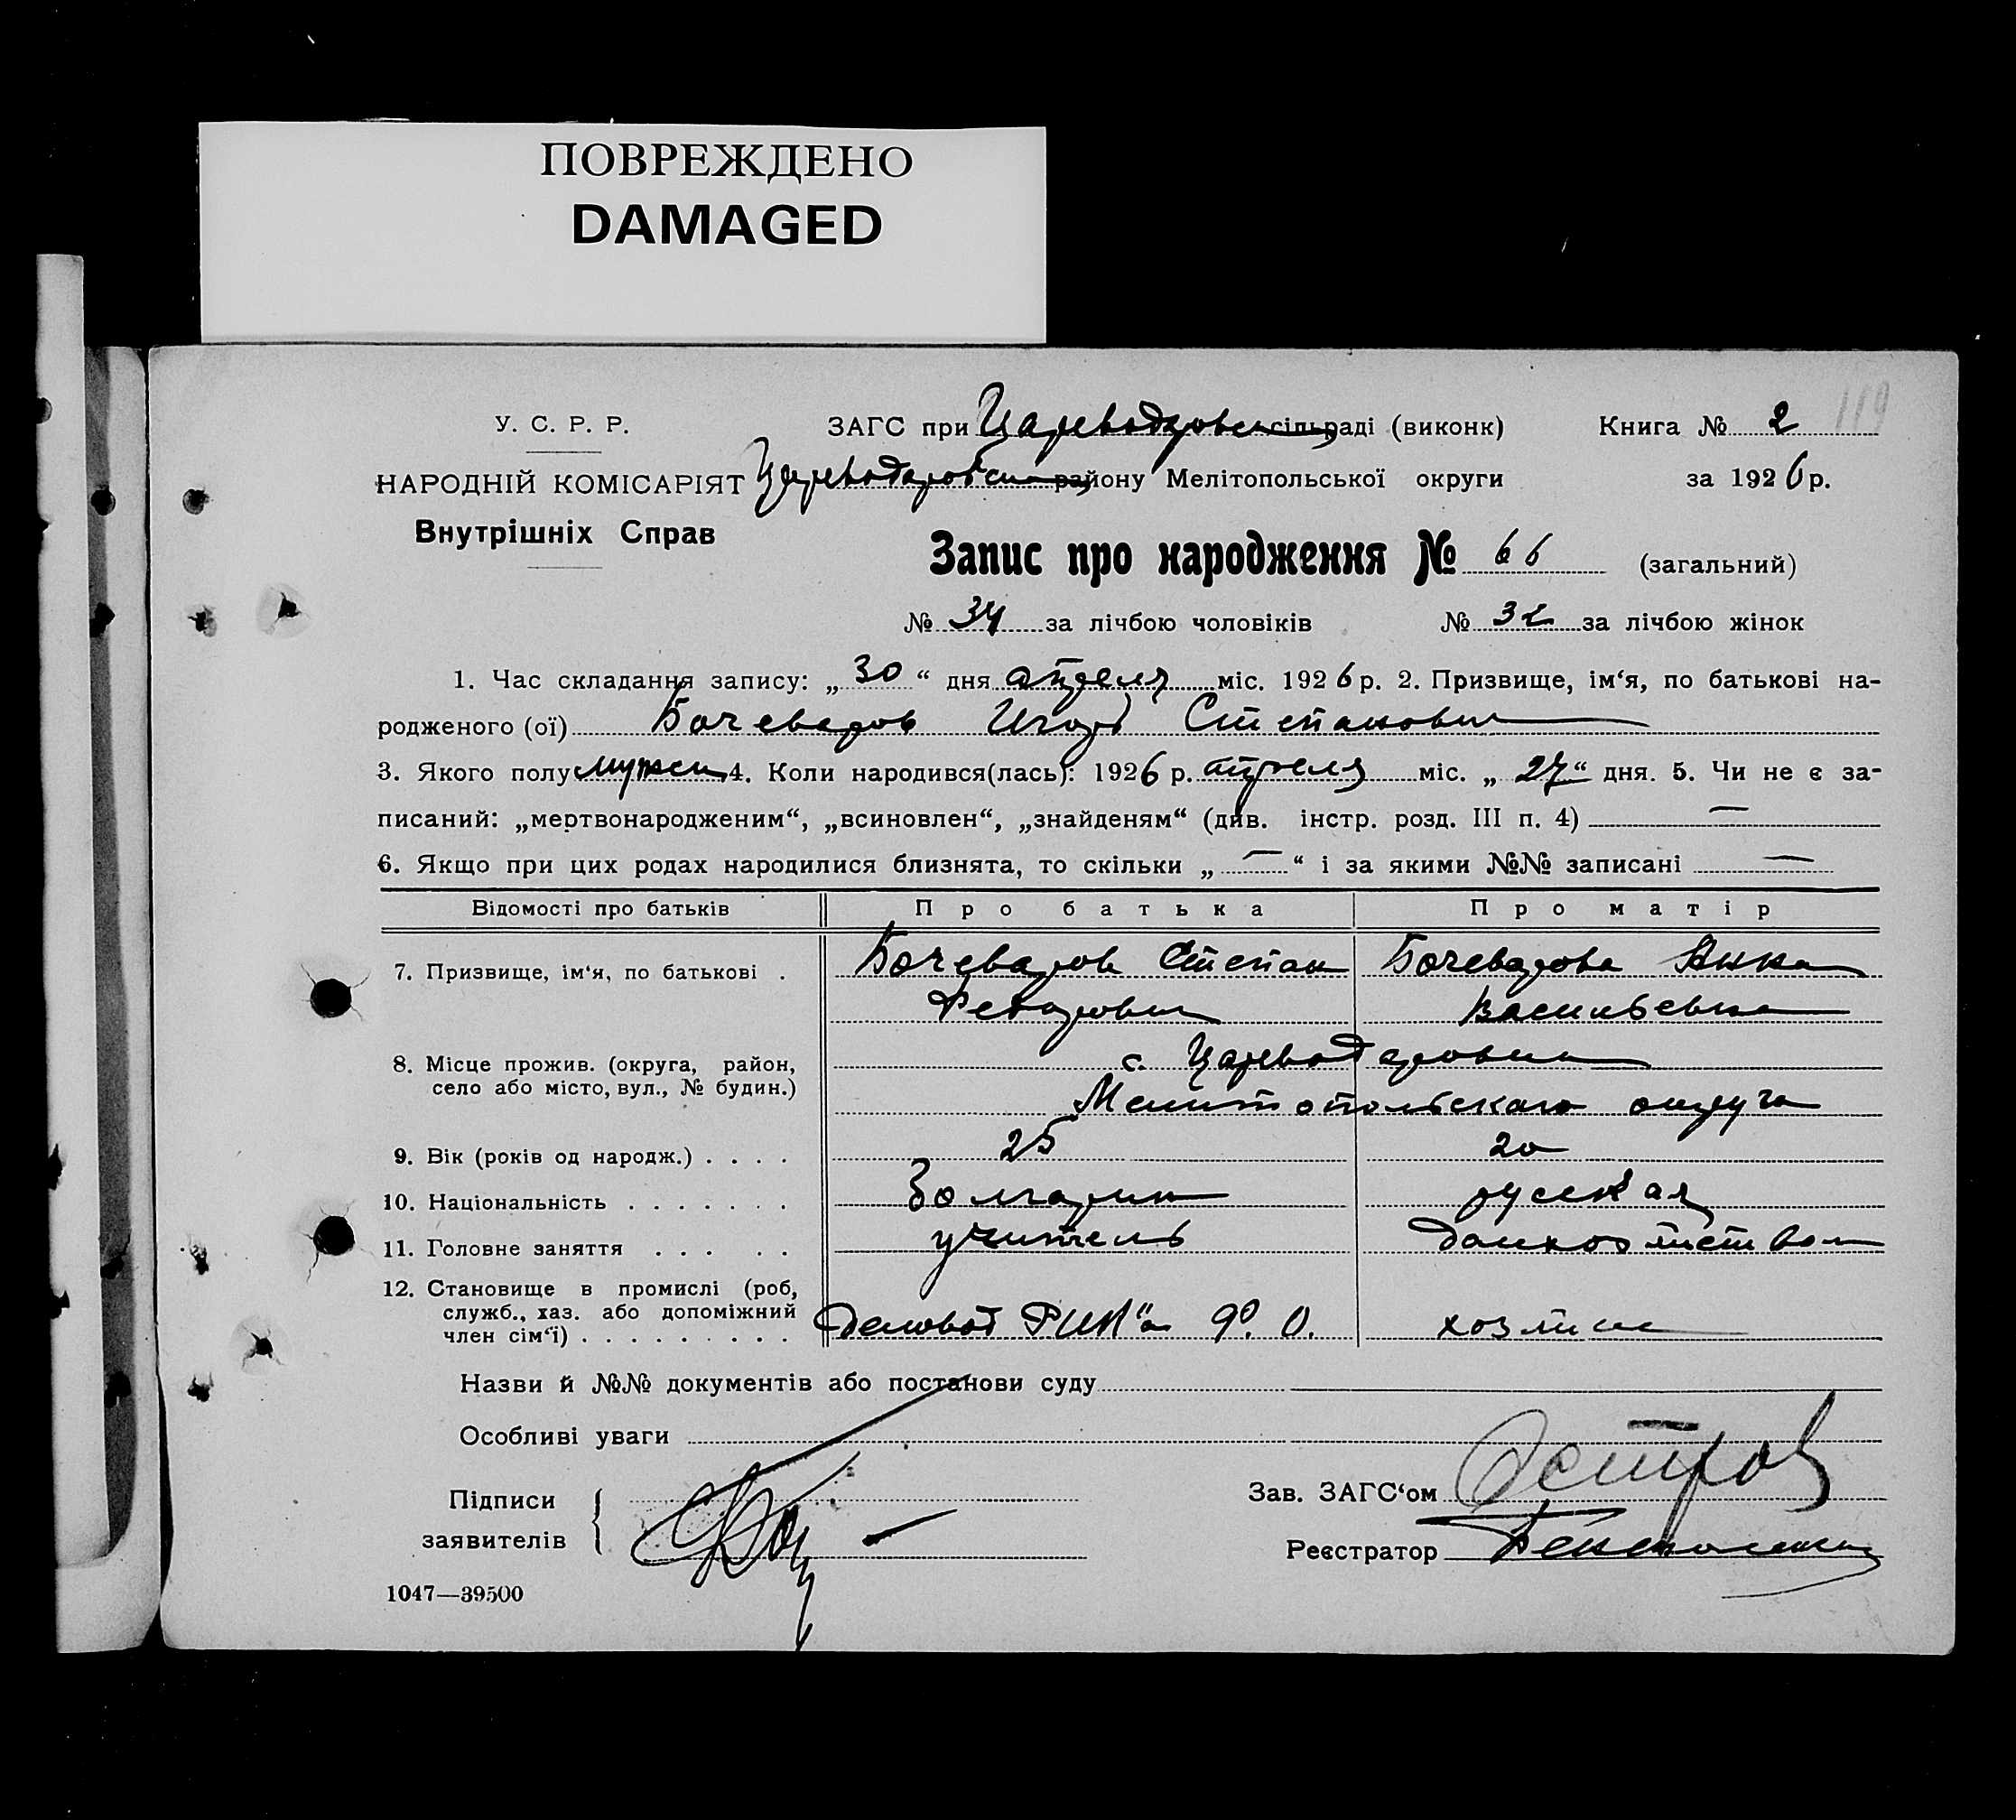 ПОВРЕЖДЕНО
DAMAGED
119
У. С. Р. Р.
НАРОДНІЙ КОМІСАРІЯТ
Внутрішніх Справ
ЗАГС при Цареводаровск сільраді (виконк)
Книга № 2
Цареводаровск району Мелітопольської округи
за 1926 р.
Запис про народження № 66 (загальний)
№ 34 за лічбою чоловіків № 32 за лічбою жінок
1. Час складання запису: „ 30 “ дня апреля міс. 1926 р. 2. Призвище, ім‘я, по батькові на-
родженого (ої) Бачеваров Игорь Степанович
3. Якого полу мужск 4. Коли народився(лась): 1926 р. апреля міс. „ 27 “ дня. 5. Чи не є за-
писаний: „мертвонародженим“, „всиновлен“, „знайденям“ (див. інстр. розд. III п. 4) —
6. Якщо при цих родах народилися близнята, то скільки „ — “ і за якими №№ записані —
Відомості про батьків Про батька Про матір
7. Призвище, ім‘я, по батькові . Бачеваров Степан Бачеварова Анна
Федорович Васильевна
8. Місце прожив. (округа, район,
село або місто, вул., № будин.)
с. Цареводаровка
Мелитопольскаго округа
9. Вік (років од народж.) . . . . 25 20
10. Національність . . . . . . . Болгарин русская
11. Головне заняття . . . . . учитель
12. Становище в промислі (роб,
служб., хаз. або допоміжний
член сім‘ї) . . . . . . . . . РИК"а
Назви й №№ документів або постанови суду
Особливі уваги
Підписи
заявителів
Зав. ЗАГС‘ом
Реєстратор
1047—39500